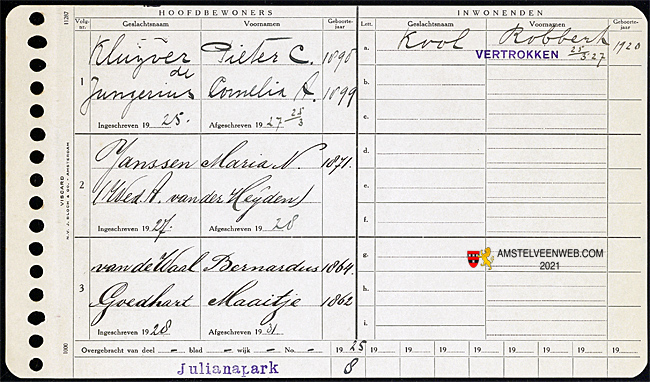 HOOFDBEWONERS
INWONENDEN
Volg-nr. Geslachtsnaam Voornamen Geboorte-jaar Lett. Geslachtsnaam Voornamen Geboorte-jaar
11287
1 Kluijver Pieter C. 1895 a. Kool Robbert 1920
de
VERTROKKEN 25/3 27
Jungerius Cornelia A. 1899 b.
Ingeschreven 1925. Afgeschreven 1927 25/3 c.
2 Janssen Maria N. 1871. d.
(Wed. A. van der Heijden) e.
Ingeschreven 1927. Afgeschreven 1928 f.
VISCARD
N.V. J. BLOCH & CO. - AMSTERDAM
3 van de Waal Bernardus 1864. g.
AMSTELVEENWEB.COM
2021
Goedhart Maaitje 1862 h.
Ingeschreven 1928 Afgeschreven 1931 i.
1000
Overgebracht van deel - blad - wijk - No. - 1925 19 19 19 19 19 19 19
Julianapark 8